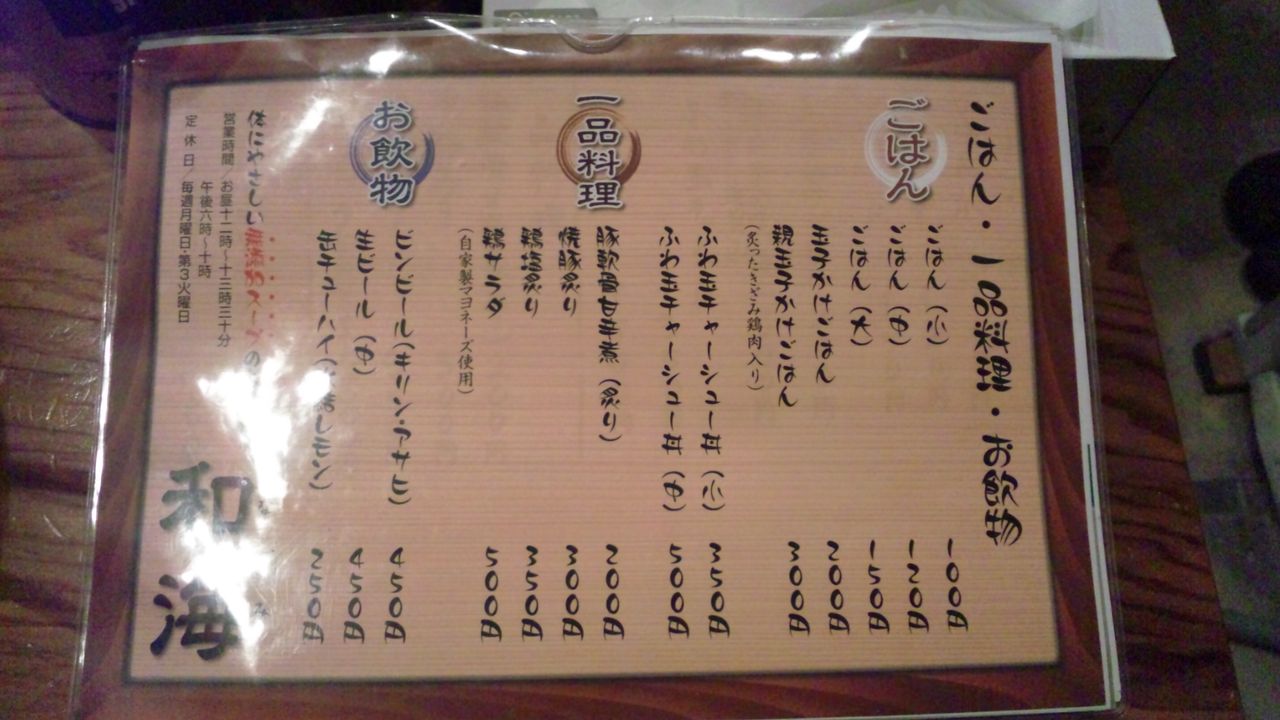 ごはん・一品料理・お飲物
ごはん
ごはん(小) 100円
ごはん(中) 120円
ごはん(大) 150円
玉子かけごはん 200円
親玉子かけごはん 300円
(炙ったきざみ鶏肉入り)
ふわ玉チャーシュー丼(小) 350円
ふわ玉チャーシュー丼(中) 500円
一品料理
豚軟骨甘辛煮(炙り) 200円
焼豚炙り 300円
鶏塩炙り 350円
鶏サラダ 500円
(自家製マヨネーズ使用)
お飲物
ビンビール(キリン・アサヒ) 450円
生ビール(中) 450円
缶チューハイ(氷結レモン) 250円
体にやさしい無添加スープの
和海
営業時間/お昼十二時~十三時三十分
午後六時~十時
定休日/毎週月曜日・第3火曜日